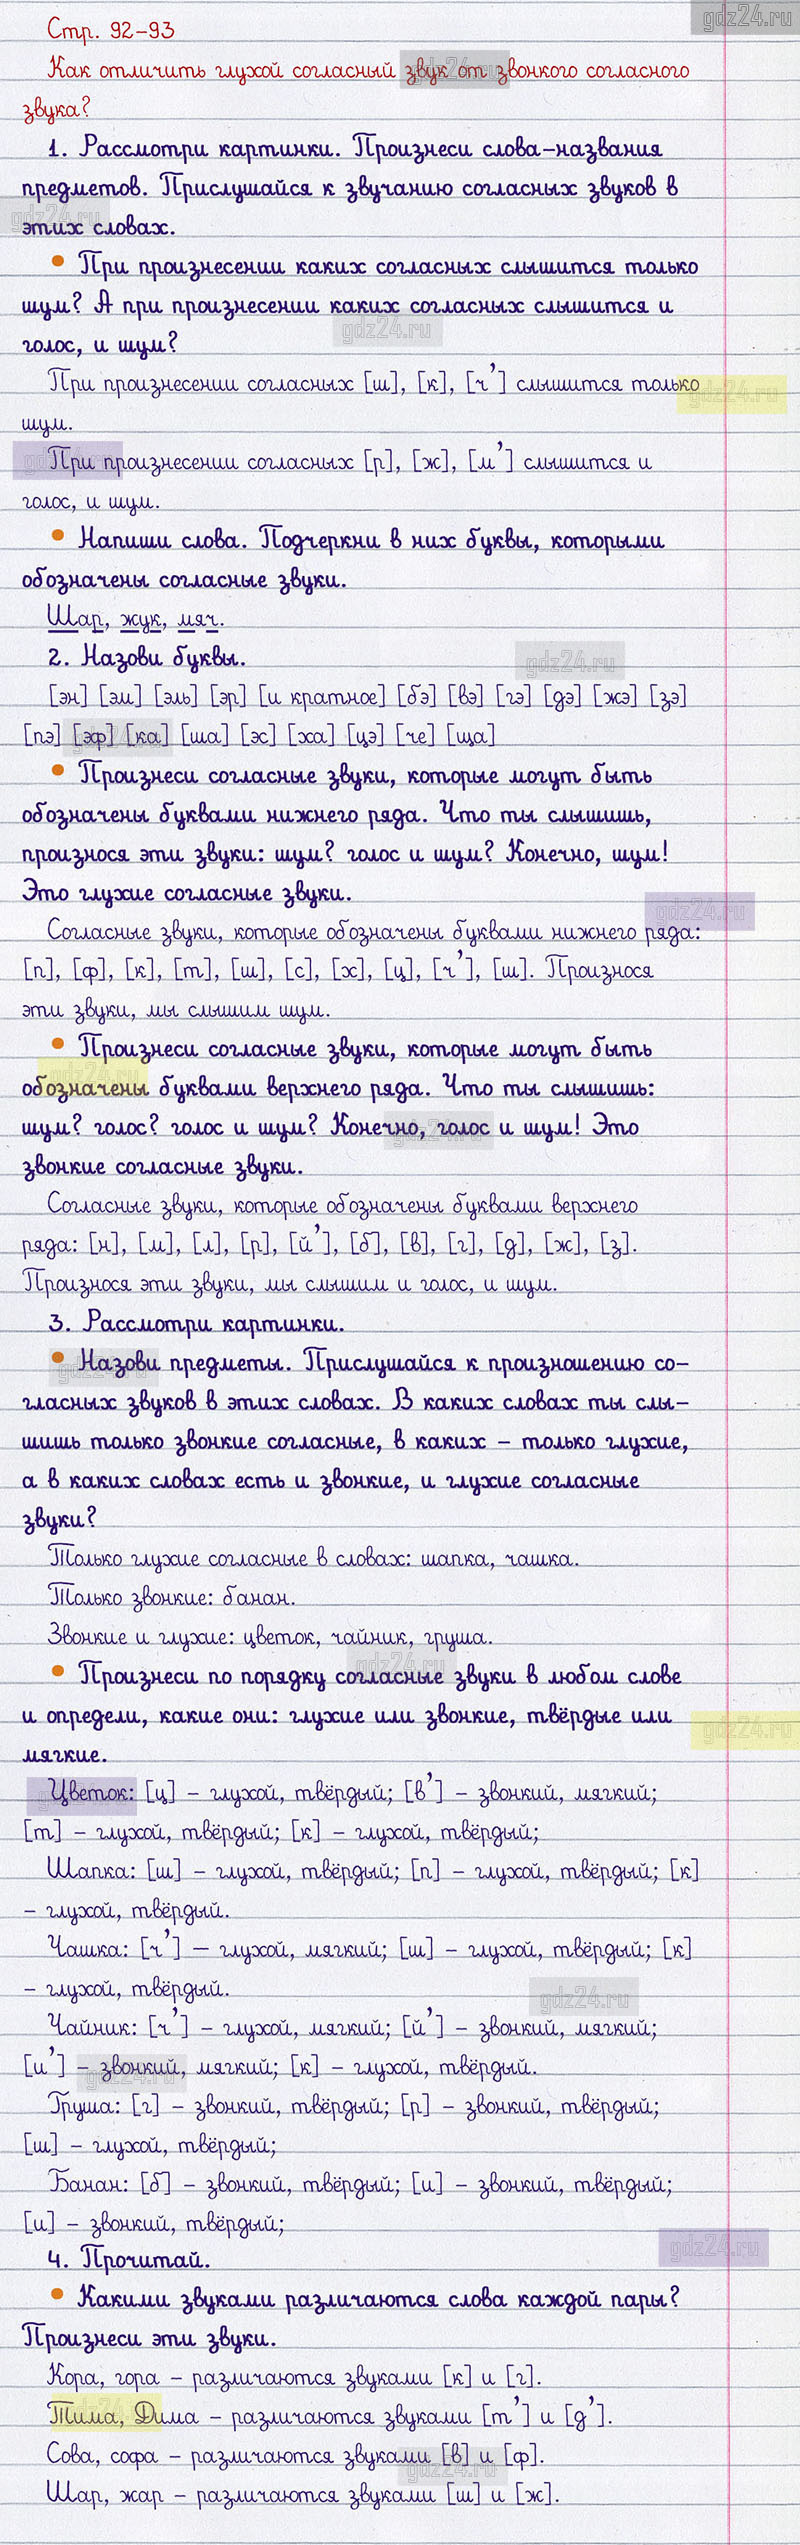 gdz24.ru
Стр. 92-93
Как отличить глухой согласный звук от звонкого согласного
звука?
1. Рассмотри картинки. Произнеси слова-названия
предметов. Прислушайся к звучанию согласных звуков в
этих словах.
• При произнесении каких согласных слышится только
шум? А при произнесении каких согласных слышится и
голос, и шум?
При произнесении согласных [ш], [к], [ч’] слышится только
шум.
При произнесении согласных [р], [ж], [м’] слышится и
голос, и шум.
• Напиши слова. Подчеркни в них буквы, которыми
обозначены согласные звуки.
Шар, жук, мяч.
2. Назови буквы.
[эн] [эм] [эль] [эр] [и кратное] [бэ] [вэ] [гэ] [дэ] [жэ] [зэ]
[пэ] [эф] [ка] [ша] [эс] [ха] [цэ] [че] [ща]
• Произнеси согласные звуки, которые могут быть
обозначены буквами нижнего ряда. Что ты слышишь,
произнося эти звуки: шум? голос и шум? Конечно, шум!
Это глухие согласные звуки.
Согласные звуки, которые обозначены буквами нижнего ряда:
[п], [ф], [к], [т], [ш], [с], [х], [ц], [ч’], [ш]. Произнося
эти звуки, мы слышим шум.
• Произнеси согласные звуки, которые могут быть
обозначены буквами верхнего ряда. Что ты слышишь:
шум? голос? голос и шум? Конечно, голос и шум! Это
звонкие согласные звуки.
Согласные звуки, которые обозначены буквами верхнего
ряда: [н], [м], [л], [р], [й’], [б], [в], [г], [д], [ж], [з].
Произнося эти звуки, мы слышим и голос, и шум.
3. Рассмотри картинки.
• Назови предметы. Прислушайся к произношению со-
гласных звуков в этих словах. В каких словах ты слы-
шишь только звонкие согласные, в каких – только глухие,
а в каких словах есть и звонкие, и глухие согласные
звуки?
Только глухие согласные в словах: шапка, чашка.
Только звонкие: банан.
Звонкие и глухие: цветок, чайник, груша.
• Произнеси по порядку согласные звуки в любом слове
и определи, какие они: глухие или звонкие, твёрдые или
мягкие.
Цветок: [ц] – глухой, твёрдый; [в’] – звонкий, мягкий;
[т] – глухой, твёрдый; [к] – глухой, твёрдый;
Шапка: [ш] – глухой, твёрдый; [п] – глухой, твёрдый; [к]
– глухой, твёрдый.
Чашка: [ч’] — глухой, мягкий; [ш] – глухой, твёрдый; [к]
– глухой, твёрдый.
Чайник: [ч’] – глухой, мягкий; [й’] – звонкий, мягкий;
[н’] – звонкий, мягкий; [к] – глухой, твёрдый.
Груша: [г] – звонкий, твёрдый; [р] – звонкий, твёрдый;
[ш] – глухой, твёрдый;
Банан: [б] – звонкий, твёрдый; [н] – звонкий, твёрдый;
[н] – звонкий, твёрдый;
4. Прочитай.
• Какими звуками различаются слова каждой пары?
Произнеси эти звуки.
Кора, гора – различаются звуками [к] и [г].
Тима, Дима – различаются звуками [т’] и [д’].
Сова, софа – различаются звуками [в] и [ф].
Шар, жар – различаются звуками [ш] и [ж].